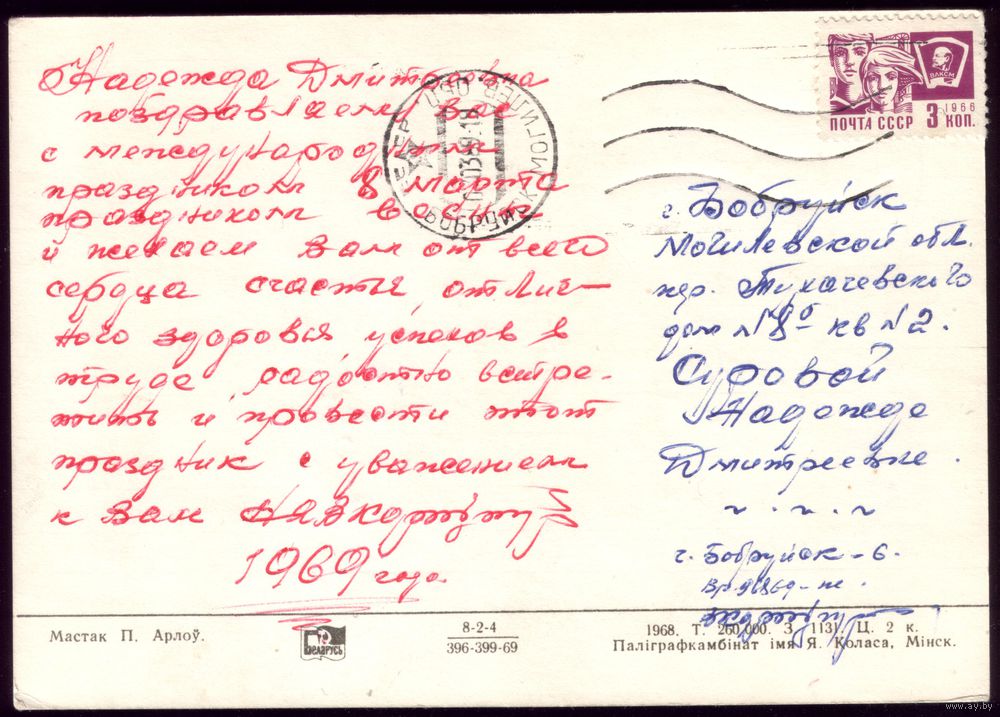 Надежда Дмитриевна
поздравляем вас
с международным
праздником 8 марта
праздником весны
и желаем вам от всего
сердца счастья, отлич-
ного здоровья успехов в
труде радостно встре-
тить и провести этот
праздник с уважением
к вам
1969 года.
ПОЧТА СССР
3 КОП.
1966
ВЛКСМ
г. Бобруйск
Могилевской обл.
пер. Тухачевского
дом №8а кв №2.
Суровой
Надежде
Дмитревне.
г. Бобруйск-6.
Мастак П. Арлоў.
Беларусь
8-2-4
396-399-69
1968. Т. 260.000. З. 1131. Ц. 2 к.
Паліграфкамбінат імя Я. Коласа, Мінск.
www.ay.by